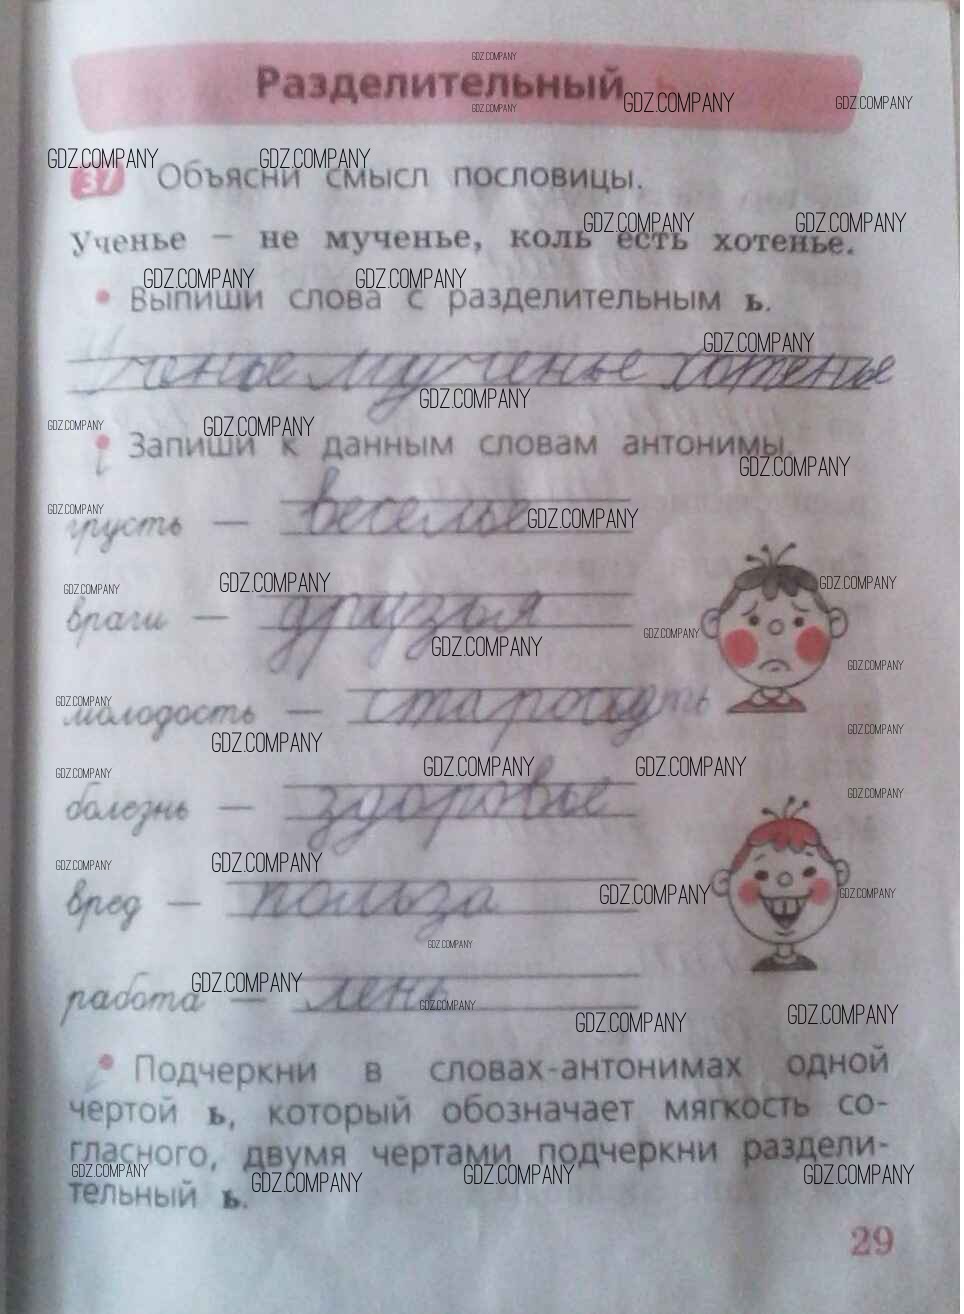 Разделительный
37 Объясни смысл пословицы.
Ученье – не мученье, коль есть хотенье.
• Выпиши слова с разделительным ь.
Ученье мученье хотенье
• Запиши к данным словам антонимы.
грусть — веселье
враги — друзья
молодость — старость
болезнь — здоровье
вред — польза
работа — лень
• Подчеркни в словах-антонимах одной
чертой ь, который обозначает мягкость со-
гласного, двумя чертами подчеркни раздели-
тельный ь.
29
GDZ.COMPANY